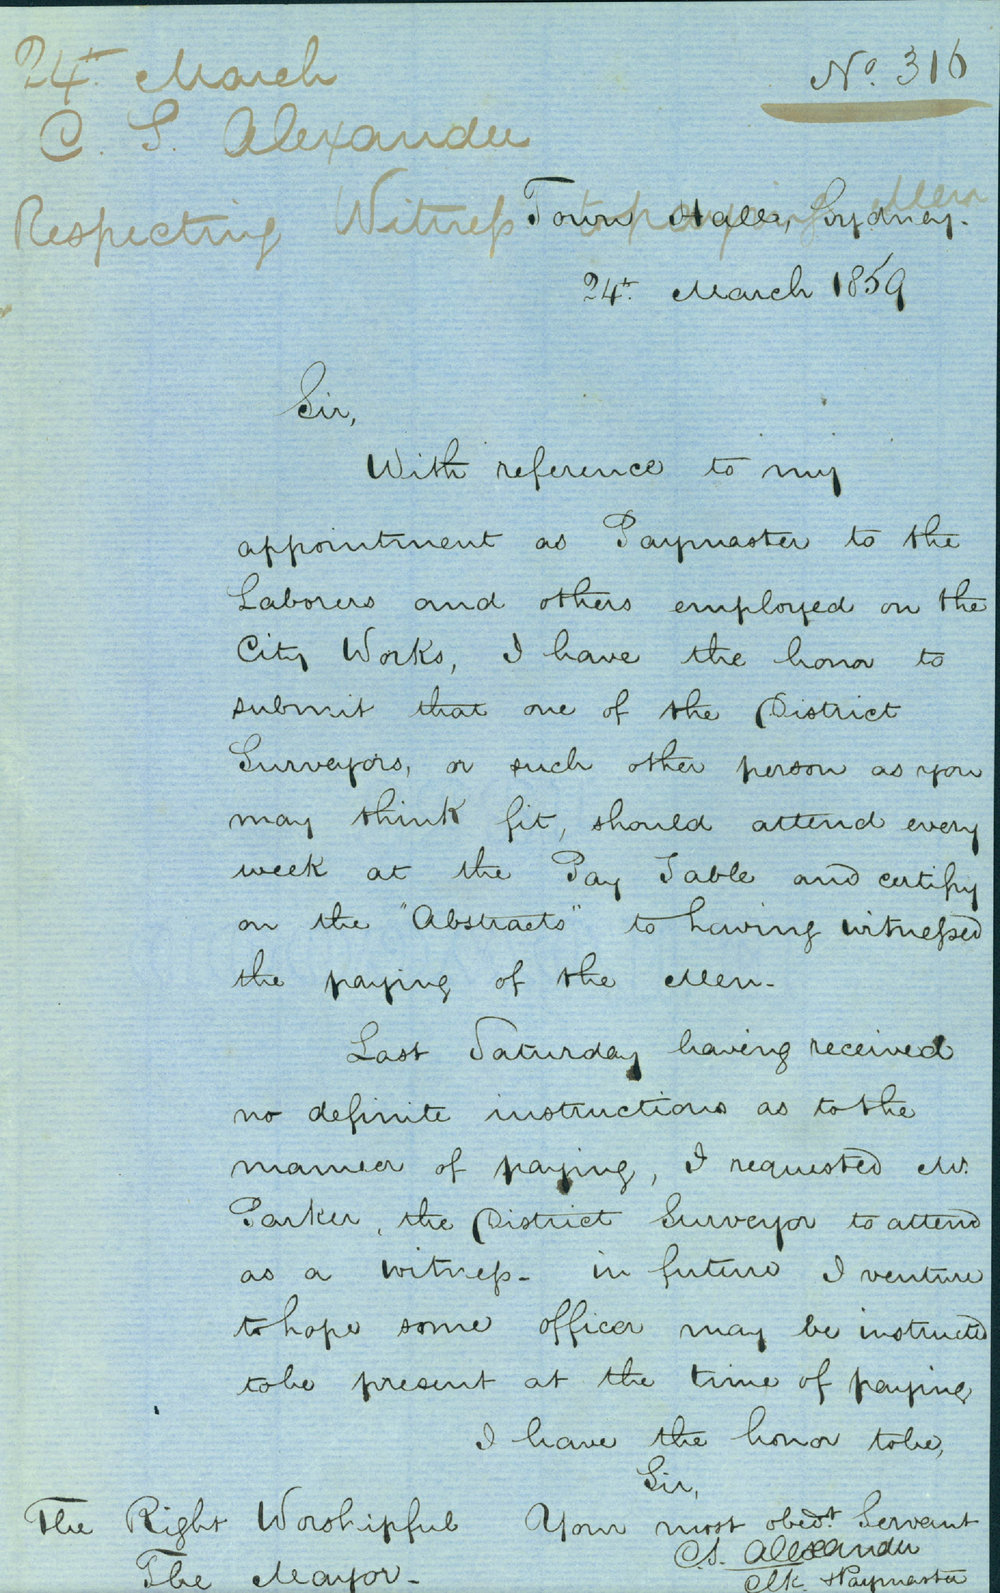 24th March
No. 316
C. S. Alexander
Respecting Witness to paying Men
Town Hall, Sydney.
24th March 1859
Sir,
With reference to my
appointment as Paymaster to the
Laborers and others employed on the
City Works, I have the honor to
submit that one of the District
Surveyors, or such other person as you
may think fit, should attend every
week at the Pay Table and certify
on the "Abstracts" to having witnessed
the paying of the Men.
Last Saturday having received
no definite instructions as to the
manner of paying, I requested Mr.
Parker, the District Surveyor to attend
as a witness - in future I venture
to hope some officer may be instructed
to be present at the time of paying
I have the honor to be,
Sir,
The Right Worshipful Your most obedt. Servant
C.S. Alexander
The Mayor - Clk. Paymaster